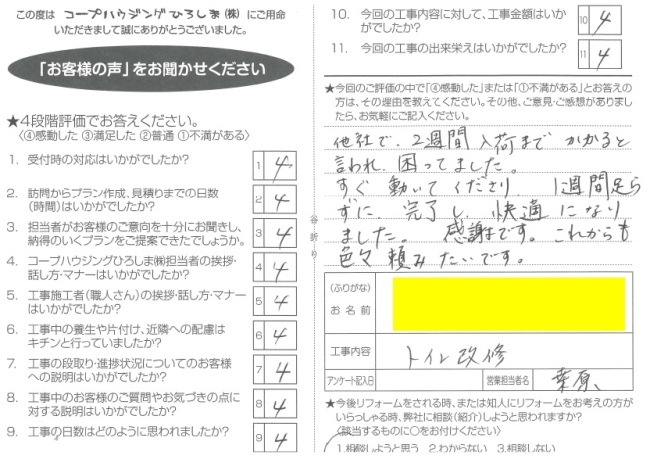 この度は コープハウジングひろしま(株) にご用命
いただきまして誠にありがとうございました。
「お客様の声」をお聞かせください
★4段階評価でお答えください。
〈④感動した ③満足した ②普通 ①不満がある〉
1. 受付時の対応はいかがでしたか? 1 4
2. 訪問からプラン作成、見積りまでの日数
(時間)はいかがでしたか? 2 4
3. 担当者がお客様のご意向を十分にお聞きし、
納得のいくプランをご提案できたでしょうか。 3 4
4. コープハウジングひろしま㈱担当者の挨拶・
話し方・マナーはいかがでしたか? 4 4
5. 工事施工者(職人さん)の挨拶・話し方・マナー
はいかがでしたか? 5 4
6. 工事中の養生や片付け、近隣への配慮は
キチンと行っていましたか? 6 4
7. 工事の段取り・進捗状況についてのお客様
への説明はいかがでしたか? 7 4
8. 工事中のお客様のご質問やお気づきの点に
対する説明はいかがでしたか? 8 4
9. 工事の日数はどのように思われましたか? 9 4
谷折り
10. 今回の工事内容に対して、工事金額はいか
がでしたか? 10 4
11. 今回の工事の出来栄えはいかがでしたか? 11 4
★今回のご評価の中で「④感動した」または「①不満がある」とお答え
の方は、その理由を教えてください。その他、ご意見・ご感想がありまし
たら、お気軽にご記入ください。
他社で、2週間 入荷まで かかると
言われ、困ってました。
すぐ 動いて くださり、1週間足ら
ずに、完了し、快適 になり
ました。 感謝です。 これからも
色々 頼みたいです。
(ふりがな)
お 名 前
工事内容 トイレ改修
アンケート記入日 営業担当者名 栗原
★今後リフォームをされる時、または知人にリフォームをお考えの方が
いらっしゃる時、弊社に相談(紹介)しようと思われますか?
〈該当するものに○をお付けください〉
1.相談しようと思う 2.わからない 3.相談しない